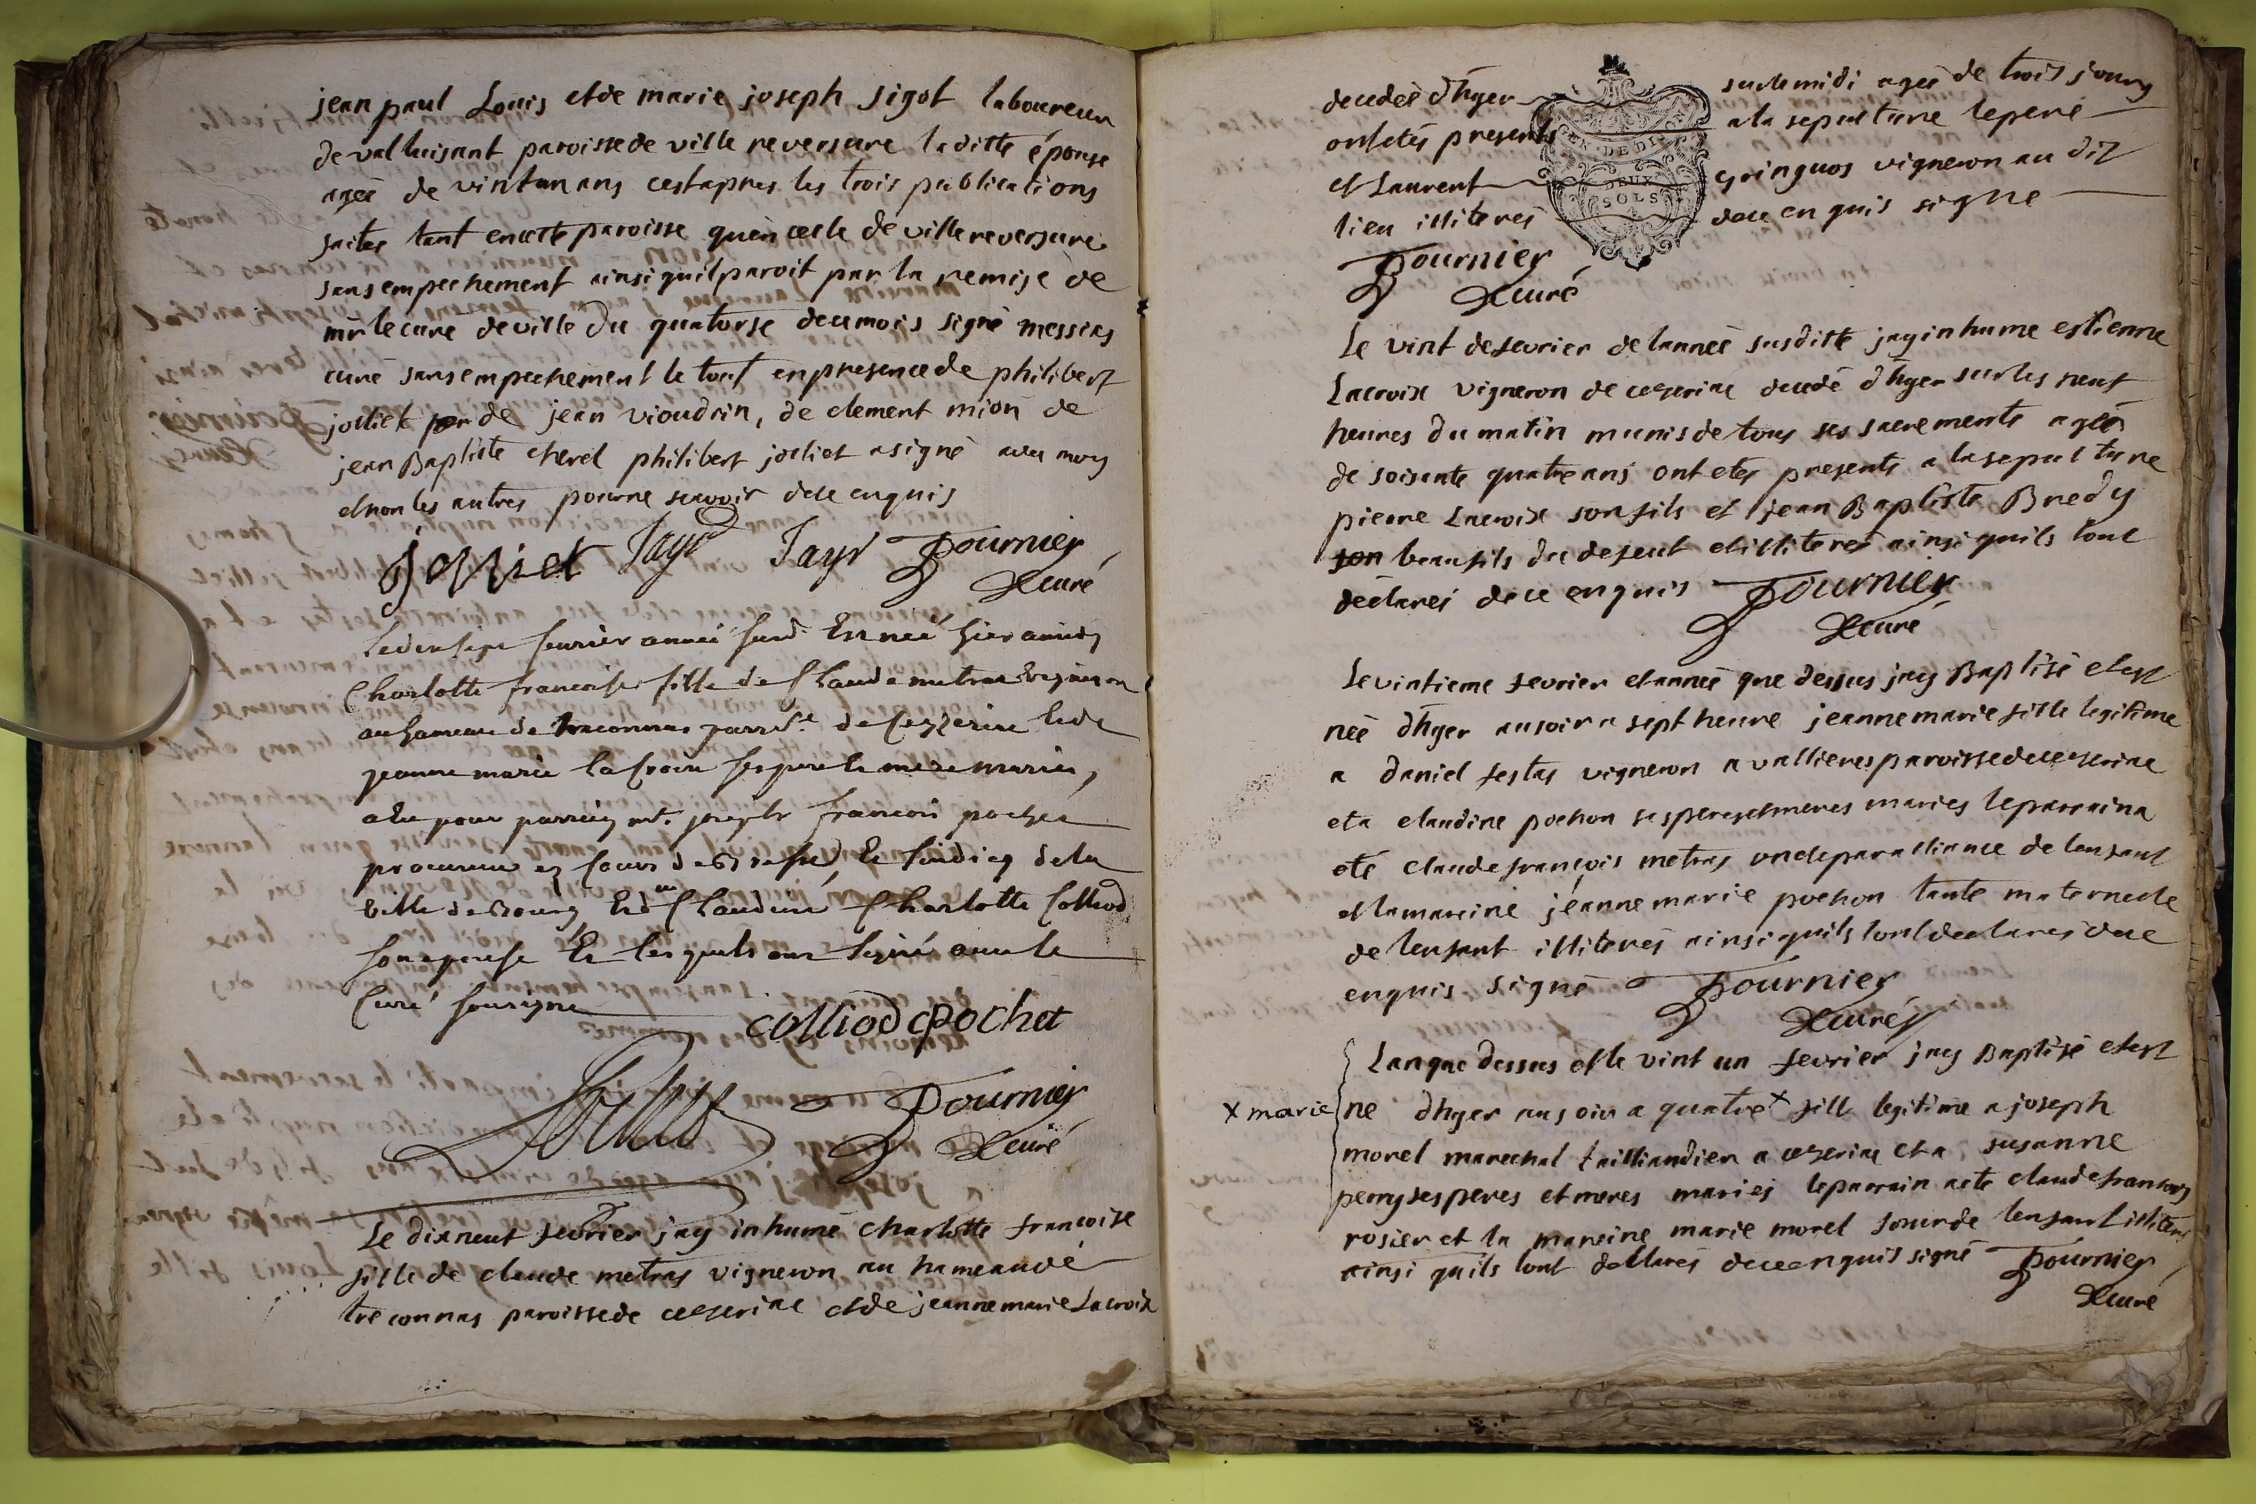 jean paul Louis et de marie joseph sigot laboureur
de valluisant paroisse de ville reversure laditte épouse
agéé de vint un ans cest apres les trois publications
faites tant en cette paroisse quèn celle de ville reversure
sans empechement ainsi quil paroit par la remise de
mr le cure de ville du quatorse de ce mois signé messias
curé sans empechement le tout en presence de philibert
jolliet de jean vioudrin, de clement mion de
jean Baptiste cherel philibert jolliet a signé avec moy
et non les autres pour ne scavoir de ce enquis
jolliet Tayr Tayr Fournier
curé
fevrier année susd. Est neé hier
Charlotte francoise fille de Claude metras vigneron
au hameau de treconnas parrse. de Ceyzeriat et de
jeanne marie lacroix ses pere et mere mariés,
a Eu pour parrain mr. joseph francois pochet
procureur es cours de Bresse, et sindicq de la
ville de Bourg Et de Claudine Charlotte Colliod
son epouse Et lesquels ont signé avec le
Curé sousigne
colliod pochet
Pochet Fournier
curé
Le dix neuf fevrier j'ay inhumé charlotte francoise
fille de claude metras vigneron au hameau de
tre connas paroisse de ceyseriac et de jeanne marie Lacroix
decedeé d'hyer sur le midi ageé de trois jours
ont etés presents a la sepulture le pere
et Laurent gringuos vigneron au dit
lieu illiterés de ce enquis signe
GEN. DE DIJON
DEUX
SOLS
Fournier
curé
Le vint de fevrier de lanneé susditte jay inhume estienne
Lacroix vigneron de ceyseriac decedé d'hyer sur les neuf
heures du matin munis de tous ses sacrements agéé
de soisante quatre ans ont etés presents a la sepulture
pierre Lacroix son fils et jean Baptiste Bredy
son beaufils du defeut et illiterés ainsi quils lont
déclarés de ce enquis Fournier
curé
Le vintieme fevrier et anneé que dessus j'ay Baptisé et est
néé d'hyer au soir a sept heure jeanne marie fille legitime
a daniel festas vigneron a vallieres paroisse de ceyseriac
et a claudine pochon ses peres et meres mariés le parrain a
eté claude françois metras oncle par alliance de lenfant
et la mareine jéanne marie pochon tante maternelle
de lenfant illiterés ainsi quils lont declarés de ce
enquis signé Fournier
curé
Lan que dessus et le vint un fevrier j'ay Baptisé et est
x marie
né d'hyer au soir a quatre x fille legitime a joseph
morel marechal tailliandier a ceyseriac et a susanne
perry ses peres et meres mariés le parrain a eté claude francoys
rosier et la mareine marie morel soeur de lenfant illiterés
ainsi quils lont dellarés de ce enquis signé Fournier
curé